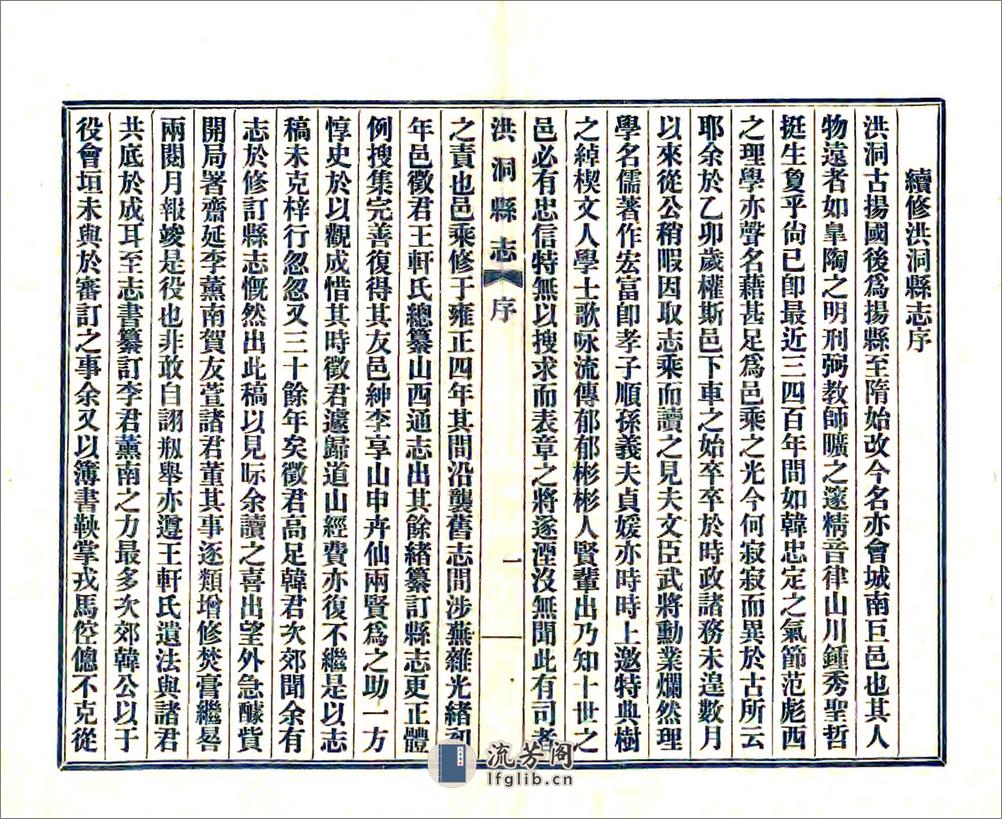 續修洪洞縣志序
洪洞古揚國後爲揚縣至隋始改今名亦會城南巨邑也其人
物遠者如皐陶之明刑弼教師曠之邃精音律山川鍾秀聖哲
挺生敻乎尙已卽最近三四百年間如韓忠定之氣節范彪西
之理學亦聲名藉甚足爲邑乘之光今何寂寂而異於古所云
耶余於乙卯歲權斯邑下車之始卒卒於時政諸務未遑數月
以來從公稍暇因取志乘而讀之見夫文臣武將勳業爛然理
學名儒著作宏富卽孝子順孫義夫貞媛亦時時上邀特典樹
之綽楔文人學士歌咏流傳郁郁彬彬人賢輩出乃知十世之
邑必有忠信特無以搜求而表章之將遂湮沒無聞此有司者
洪洞縣志 序 一
之責也邑乘修于雍正四年其間沿襲舊志間涉蕪雜光緒初
年邑徵君王軒氏總纂山西通志出其餘緒纂訂縣志更正體
例搜集完善復得其友邑紳李享山申卉仙兩賢爲之助一方
惇史於以觀成惜其時徵君遽歸道山經費亦復不繼是以志
稿未克梓行忽忽又三十餘年矣徵君高足韓君次郊聞余有
志於修訂縣志慨然出此稿以見眎余讀之喜出望外急醵貲
開局署齋延李薰南賀友萱諸君董其事逐類增修焚膏繼晷
兩閱月報竣是役也非敢自詡剏舉亦遵王軒氏遺法與諸君
共底於成耳至志書纂訂李君薰南之力最多次郊韓公以于
役會垣未與於審訂之事余又以簿書鞅掌戎馬倥傯不克從
流芳阁
lfglib.cn